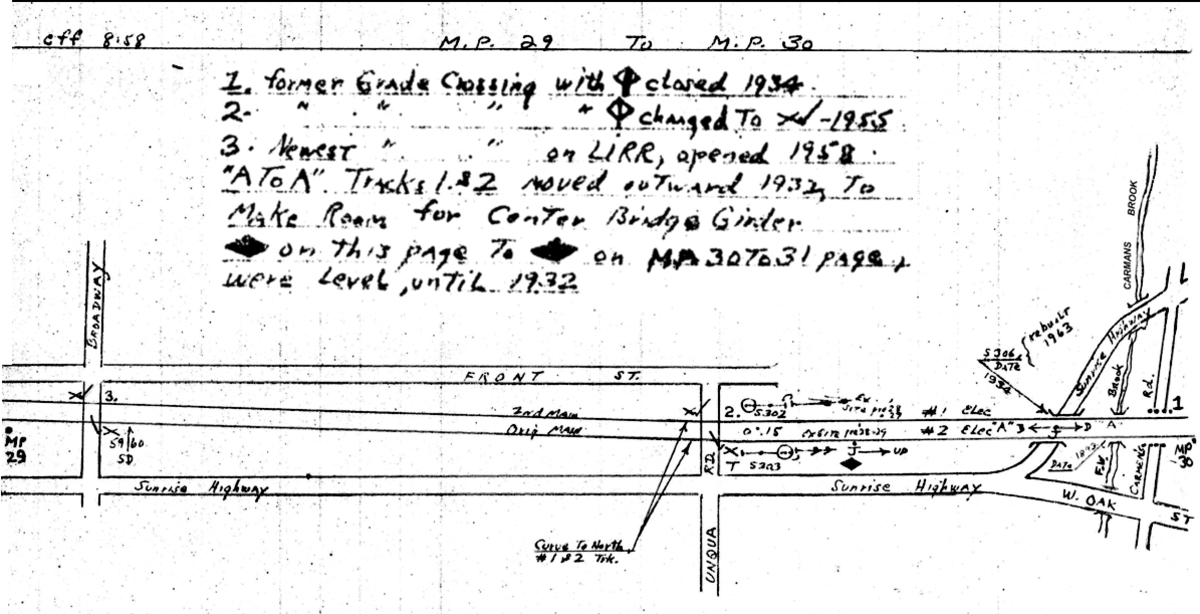 eff 8:58
M.P. 29 To M.P. 30
1. former Grade Crossing with closed 1934.
2. " " " " changed To XW - 1955
3. Newest " " on LIRR, opened 1958.
"A To A" Tracks 1 & 2 moved outward 1932, To
Make Room for Center Bridge Girder
on this page To on MP 30 To 31 page,
were Level, until 1932
BROADWAY
CARMANS BROOK
Sunrise Highway
rebuilt 1963
DATE
1934
Brook
Rd.
FRONT ST.
3.
2nd Main
2.
S302
#1 Elec
1
Orig Main
0°.15
#2 Elec "A" B
D
A
MP 29
59/60
SD
RD
T
S203
J
UP
DATE
CARMENS
MP 30
Sunrise Highway
Sunrise Highway
W. OAK ST
UNQUA
Curve To North
#1 & 2 Trk.